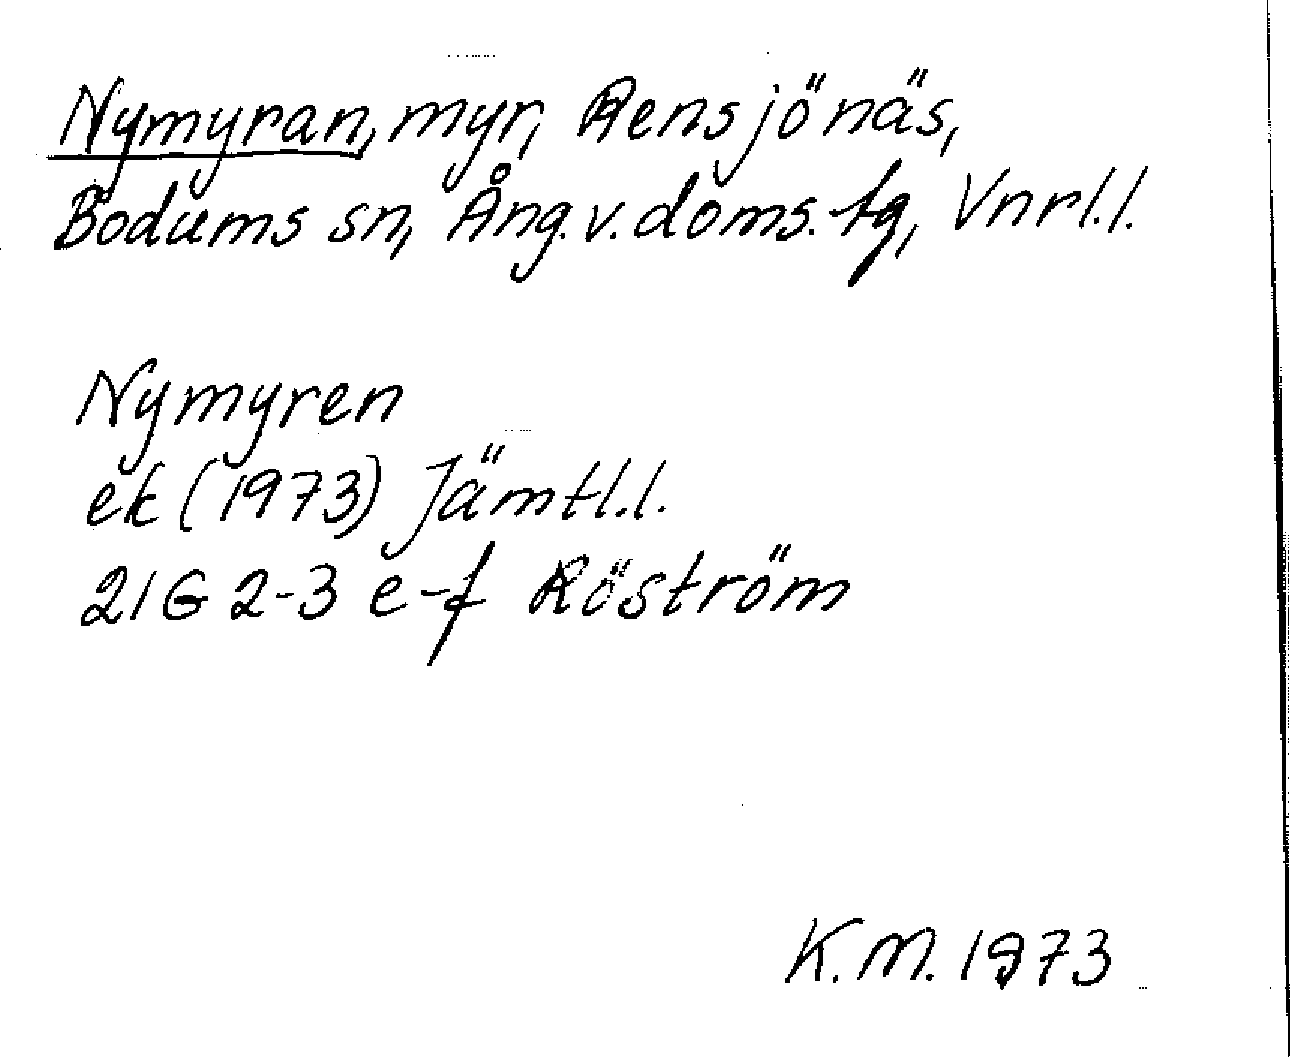 Nymyran, myr, Rensjönäs,
Bodums sn, Ång.v.doms.tg, Vnrl.l.
Nymyren
ek (1973) Jämtl.l.
21G 2-3 e-f Röström
K.M. 1973